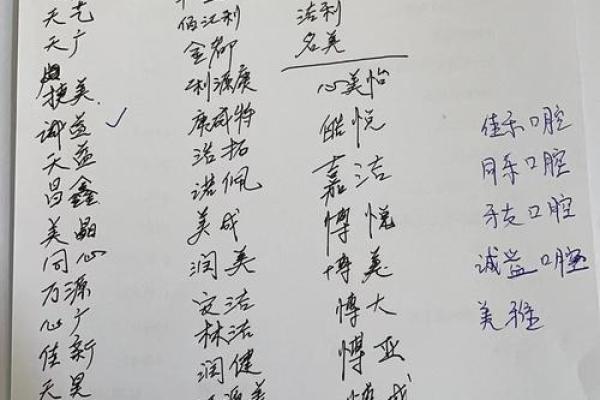 天艺
天广
捷美
诚益
天益
昌鑫
美晶
同心
万源
心广
佳新
天昊
佰江利
金都
利源康
康威特
洁拓
诺佩
美成
润美
安洁
林洁
润健
源美
洁利
名美
心美怡
皓悦
嘉洁
博悦
博美
博大
博亚
博成
佳乐口腔
同乐口腔
牙克口腔
诚益口腔
美雅